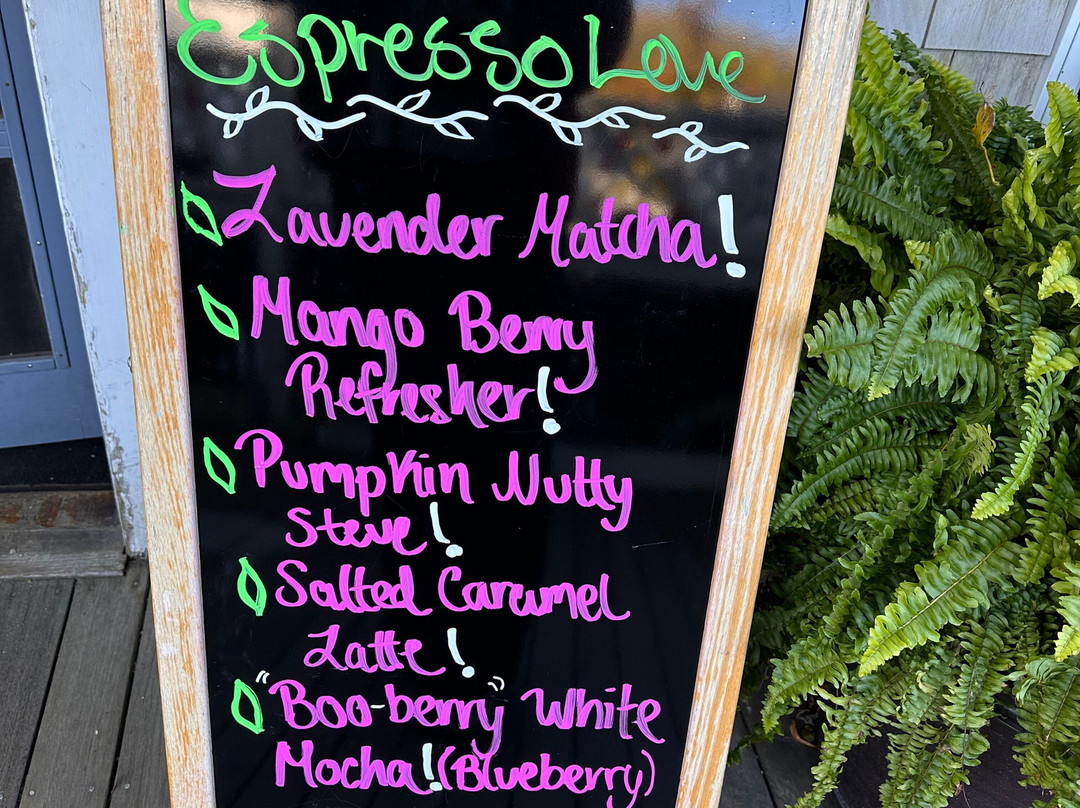 Espresso Love
Lavender Matcha!
Mango Berry
Refresher!
Pumpkin Nutty
Steve!
Salted Caramel
Latte!
"Boo-berry" White
Mocha! (Blueberry)